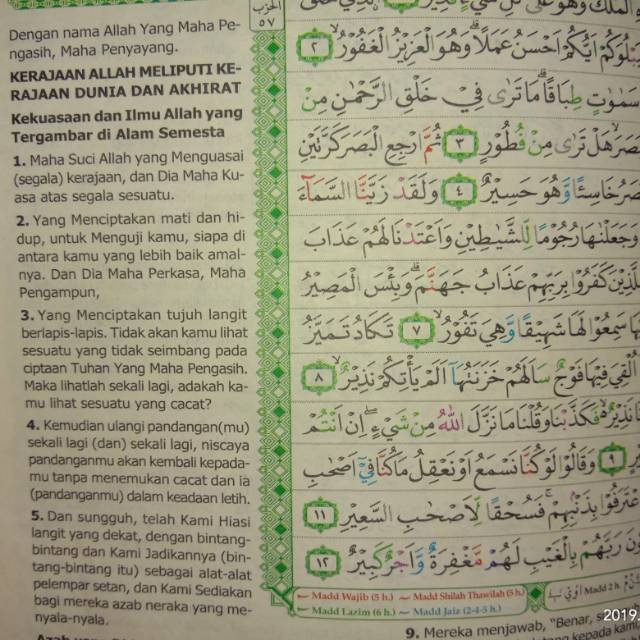 Dengan nama Allah Yang Maha Pe-
ngasih, Maha Penyayang.
KERAJAAN ALLAH MELIPUTI KE-
RAJAAN DUNIA DAN AKHIRAT
Kekuasaan dan Ilmu Allah yang
Tergambar di Alam Semesta
1. Maha Suci Allah yang Menguasai
(segala) kerajaan, dan Dia Maha Ku-
asa atas segala sesuatu.
2. Yang Menciptakan mati dan hi-
dup, untuk Menguji kamu, siapa di
antara kamu yang lebih baik amal-
nya. Dan Dia Maha Perkasa, Maha
Pengampun,
3. Yang Menciptakan tujuh langit
berlapis-lapis. Tidak akan kamu lihat
sesuatu yang tidak seimbang pada
ciptaan Tuhan Yang Maha Pengasih.
Maka lihatlah sekali lagi, adakah ka-
mu lihat sesuatu yang cacat?
4. Kemudian ulangi pandangan(mu)
sekali lagi (dan) sekali lagi, niscaya
pandanganmu akan kembali kepada-
mu tanpa menemukan cacat dan ia
(pandanganmu) dalam keadaan letih.
5. Dan sungguh, telah Kami Hiasi
langit yang dekat, dengan bintang-
bintang dan Kami Jadikannya (bin-
tang-bintang itu) sebagai alat-alat
pelempar setan, dan Kami Sediakan
bagi mereka azab neraka yang me-
nyala-nyala.
الحزب
٥٧
الملك وهو على كل شيء
أَيُّكُمْ أَحْسَنُ عَمَلًا ۗ وَهُوَ الْعَزِيزُ الْغَفُورُ ٢
طِبَاقًا ۗ مَا تَرٰى فِيْ خَلْقِ الرَّحْمٰنِ مِنْ
هَلْ تَرٰى مِنْ فُطُوْرٍ ٣ ثُمَّ ارْجِعِ الْبَصَرَ كَرَّتَيْنِ
خَاسِئًا وَّهُوَ حَسِيْرٌ ٤ وَلَقَدْ زَيَّنَّا السَّمَاۤءَ
وَجَعَلْنٰهَا رُجُوْمًا لِّلشَّيٰطِيْنِ وَاَعْتَدْنَا لَهُمْ عَذَابَ
كَفَرُوْا بِرَبِّهِمْ عَذَابُ جَهَنَّمَ ۗ وَبِئْسَ الْمَصِيْرُ
سَمِعُوْا لَهَا شَهِيْقًا وَّهِيَ تَفُوْرُ ٧ تَكَادُ تَمَيَّزُ
اُلْقِيَ فِيْهَا فَوْجٌ سَاَلَهُمْ خَزَنَتُهَآ اَلَمْ يَأْتِكُمْ نَذِيْرٌ ٨
نَذِيْرٌ فَكَذَّبْنَا وَقُلْنَا مَا نَزَّلَ اللّٰهُ مِنْ شَيْءٍ ۖ اِنْ اَنْتُمْ
٩ وَقَالُوْا لَوْ كُنَّا نَسْمَعُ اَوْ نَعْقِلُ مَا كُنَّا فِيْٓ اَصْحٰبِ
بِذَنْبِهِمْ ۚ فَسُحْقًا لِّاَصْحٰبِ السَّعِيْرِ ١١
رَبَّهُمْ بِالْغَيْبِ لَهُمْ مَّغْفِرَةٌ وَّاَجْرٌ كَبِيْرٌ ١٢
Madd Wajib (5 h.) Madd Shilah Thawilah (5 h.)
Madd Lazim (6 h.) Madd Jaiz (2-4-5 h.)
Madd 2 h.
9. Mereka menjawab, "Benar,
2019